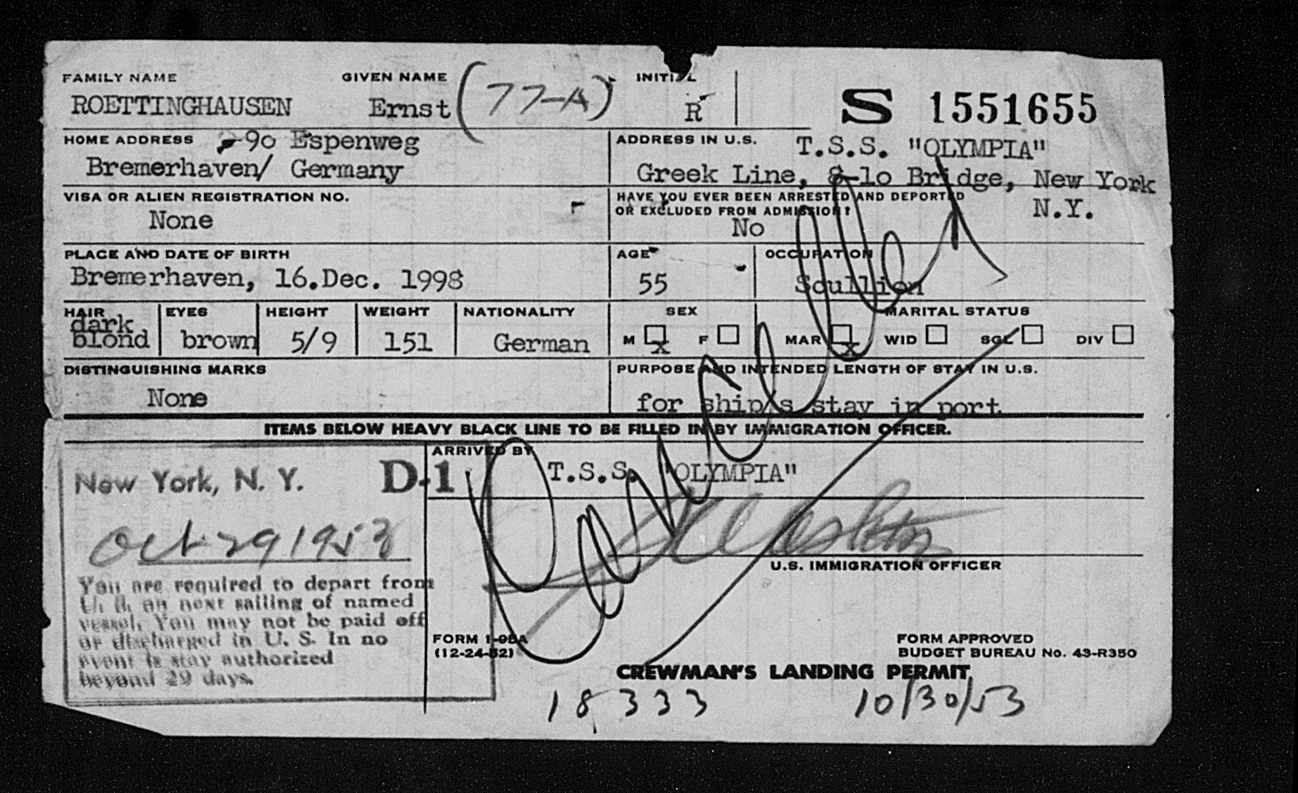 FAMILY NAME GIVEN NAME INITIAL
ROETTINGHAUSEN Ernst (77-A) R S 1551655
HOME ADDRESS 90 Espenweg
Bremerhaven/ Germany
ADDRESS IN U.S. T.S.S. "OLYMPIA"
Greek Line, 8-10 Bridge, New York
N.Y.
VISA OR ALIEN REGISTRATION NO.
None
HAVE YOU EVER BEEN ARRESTED AND DEPORTED
OR EXCLUDED FROM ADMISSION?
No
PLACE AND DATE OF BIRTH
Bremerhaven, 16.Dec. 1998
AGE OCCUPATION
55 Scullion
HAIR EYES HEIGHT WEIGHT NATIONALITY
dark
blond brown 5/9 151 German
SEX MARITAL STATUS
M X F MAR X WID SGL DIV
DISTINGUISHING MARKS
None
PURPOSE AND INTENDED LENGTH OF STAY IN U.S.
for ship's stay in port
ITEMS BELOW HEAVY BLACK LINE TO BE FILLED IN BY IMMIGRATION OFFICER.
Cancelled
New York, N. Y. D-1
Oct 29 1953
You are required to depart from
U. S. on next sailing of named
vessel. You may not be paid off
or discharged in U. S. In no
event is stay authorized
beyond 29 days.
ARRIVED BY
T.S.S. "OLYMPIA"
U.S. IMMIGRATION OFFICER
FORM I-95A
(12-24-52)
FORM APPROVED
BUDGET BUREAU No. 43-R350
CREWMAN'S LANDING PERMIT
18333 10/30/53